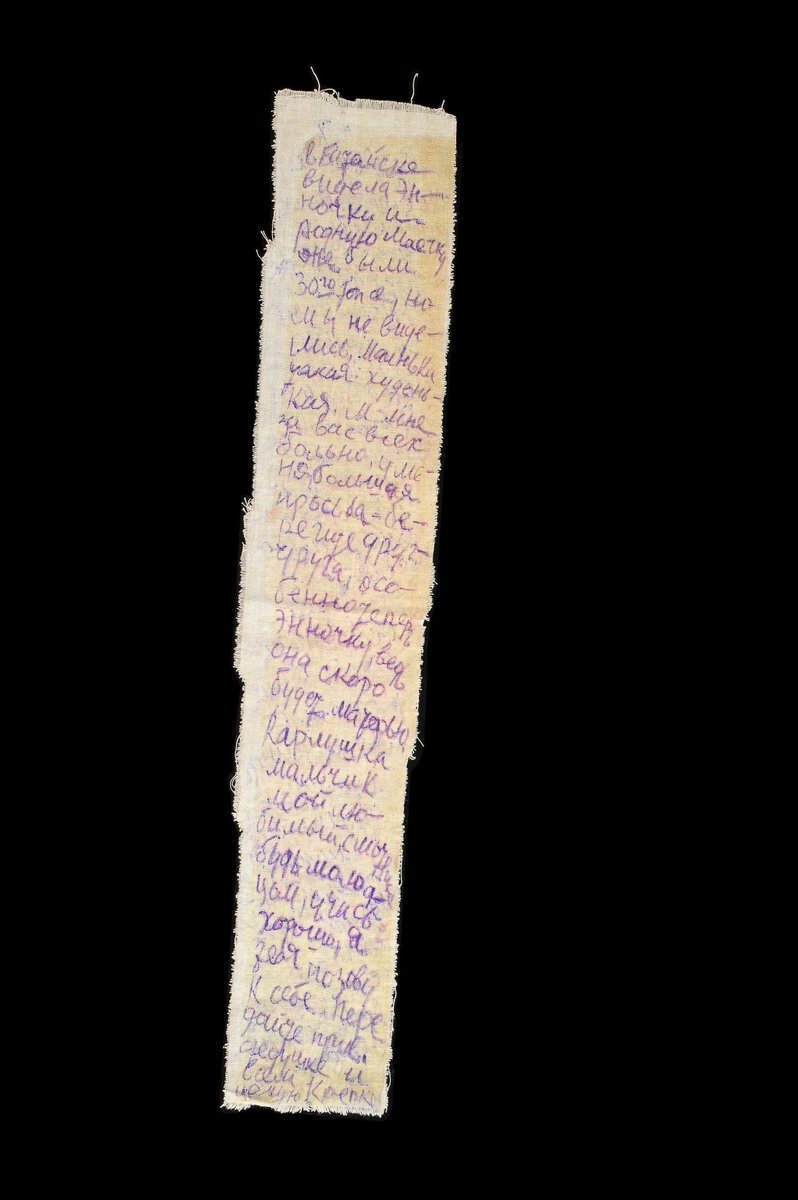 в Батайске
видела Эн-
ночки и
родную Маечку
оне были
30го там, но
мы не виде-
лись, маинька
такая худень-
кая. И мне
за вас всех
больно, у ме-
ня большая
просьба - бе-
регите друг
друга, осо-
бенно теперь
Энночку, ведь
она скоро
будет матерью
Карлушка
мальчик
мой лю-
бимый, смотри
будь молод-
цом, учись
хорошо, я
тебя позову
к себе. Пере
дайте прив.
дедушке и
всем
целую Крепк